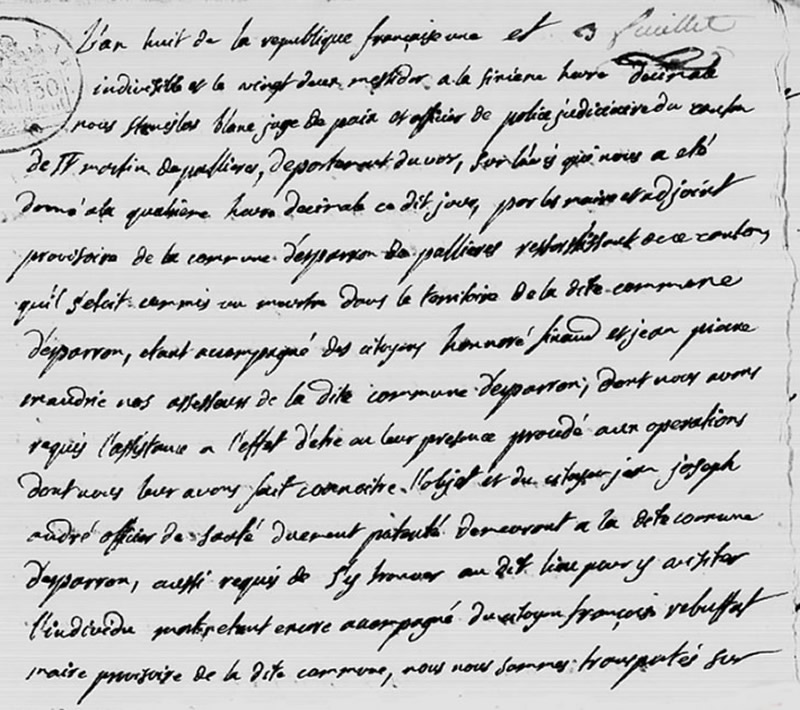 L'an huit de la republique françoise une et
juillet
indivisible et le vingt deux messidor a la sixieme heure decimale
nous stanislas blanc juge de paix et officier de police judiciaire du canton
de St martin de pallieres, departement du var, sur l'avis qui nous a eté
donné a la quatrieme heure decimale ce dit jour, par les maire et adjoint
provisoire de la commune d'esparron de pallieres ressortissant de ce canton,
qu'il s'etoit commis un meurtre dans le territoire de la dite commune
d'esparron, etant accompagné des citoyens honnoré et jean pierre
nos assesseurs de la dite commune d'esparron, dont nous avons
requis l'assistance a l'effet d'etre en leur presence procedé aux operations
dont nous leur avons fait connoitre l'objet et du citoyen jean joseph
andré officier de santé duement patenté demeurant a la dite comune
d'esparron, aussi requis de s'y trouver au dit lieu pour y visiter
l'individu mort etant encore acompagné du citoyen françois rebuffat
maire provisoire de la dite commune, nous nous sommes transportés sur